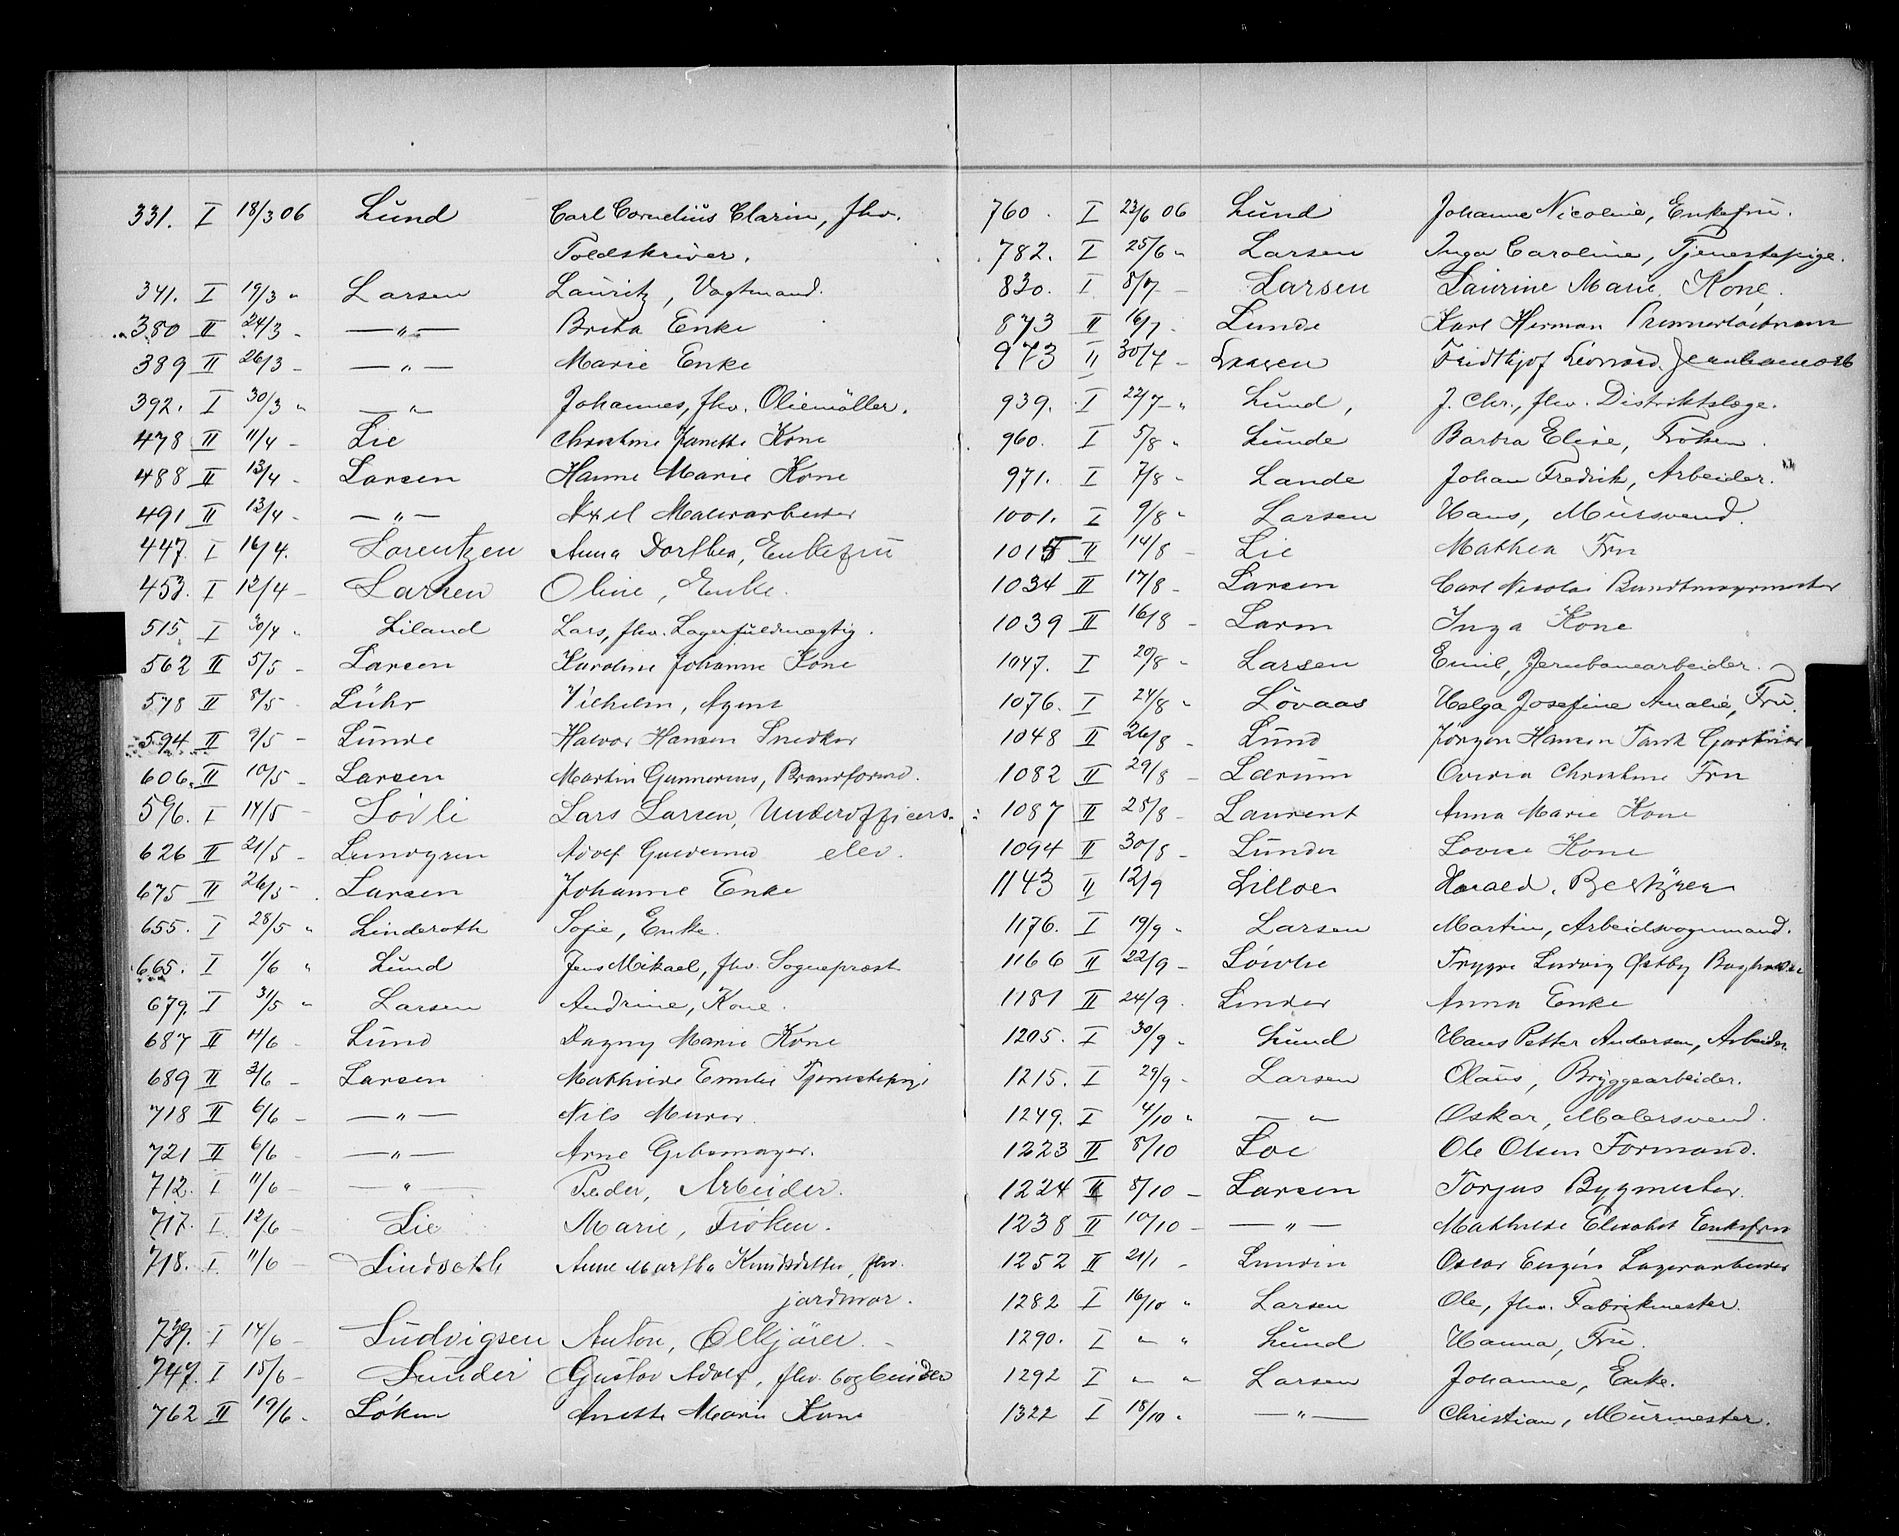 331. I 18/3 06 Lund Carl Cornelius Clarin, fhv.
Toldskriver.
341. I 19/3 " Larsen Lauritz, Vagtmand.
380 II 24/3 - —"— Brita Enke
389 II 26/3 - —"— Marie Enke
392. I 30/3 " —"— Johannes, fhv. Oliemøller.
478 II 11/4 - Lie Christine Janette Kone
488 II 13/4 - Larsen Hanne Marie Kone
491 II 13/4 - —"— Axel Malerarbeider
447. I 16/4. Lorentzen Anna Dorthea, Enkefru
453. I 12/4 - Larsen Oline, Enke.
515. I 30/4 " Liland Lars, fhv. Lagerfuldmægtig.
562 II 5/5 - Larsen Karoline Johanne Kone
578 II 8/5 - Lühr Vilhelm, Agent
594 II 9/5 - Lunde Halvor Hansen Snedker
606. II 10/5 - Larsen Martin Gunnerius, Brandformd.
596. I 14/5 - Løvli Lars Larsen, Underofficers-
626 II 21/5 - Lundgren Adolf elev.
675 II 26/5 - Larsen Johanne Enke
655. I 28/5 " Linderoth Sofie, Enke.
665. I 1/6 " Lund Jens Mikael, fhv. Sogneprest
679. I 31/5 " Larsen Andrine, Kone.
687 II 4/6 - Lund Dagny Marie Kone
689 II 2/6 - Larsen Mathilde Emilie Tjenestepige
718 II 6/6 - —"— Nils Murer.
721 II 6/6 - —"— Arne Gibsmager.
712. I 11/6 - —"— Peder, Arbeider.
717. I 12/6 - Lie Marie, Frøken.
718. I 11/6 - Lindseth Anne Martha Knudsdatter, fhv.
jordmor.
739. I 14/6 - Ludvigsen Anton, Ølkjører. -
747. I 15/6 - Lunder Gustav Adolf, fhv. bogbinder
762 II 19/6 - Løken Anette Marie Kone
760. I 23/6 06 Lund Johanne Nicoline, Enkefru.
782. I 25/6 " Larsen Inga Caroline, Tjenestepige.
830. I 8/7 - Larsen Laurine Marie Kone.
873 II 16/7 - Lunde Karl Herman Premierløitnant
973 II 30/7 - Larsen Fridthjof Leonard. Jernbanearb
939. I 22/7 - " Lund, J. Chr., fhv. Distriktslæge.
960. I 5/8 " Lunde Barbra Elise, Frøken.
971. I 7/8 " Lande Johan Fredrik, Arbeider.
1001. I 9/8 " Larsen Hans, Mursvend.
1015 II 14/8 - Lie Mathea Fru
1034 II 17/8 - Larsen Carl Nicolai Bundtmagermester
1039 II 16/8 - Larm Inga Kone
1047. I 20/8 " Larsen Emil, Jernbanearbeider.
1076. I 24/8 " Løvaas Helga Josefine Amalie, Fru.
1048 II 26/8 - Lund Jørgen Hansen Tank Gartner
1082 II 29/8 - Lærum Ovidia Christine Fru
1087 II 25/8 - Laurent Anna Marie Kone
1094 II 30/8 - Lunder Lovise Kone
1143 II 12/9 Lilloe Harald. Bestyrer
1176. I 19/9 " Larsen Martin, Arbeidsvognmand.
1166 II 22/9 - Løvlie Trygve Ludvig Østby Bogholder
1181 II 24/9. Linder Anna Enke
1205. I 30/9 " Lund Hans Petter Andersen, Arbeider.
1215. I 29/9 - Larsen Olaus, Bryggearbeider.
1249. I 4/10 " —"— Oskar, Malersvend.
1223 II 8/10 Loe Ole Olsen Formand.
1224 II 8/10 - Larsen Torjus Bygmester.
1238 II 10/10 - —"— Mathilde Elisabet Enkefru
1252 II 21/1 - Lundin Oscar Eugén Lagerarbeider
1282 I 16/10 " Larsen Ole, fhv. Fabrikmester.
1290. I " " Lund Hanna, Fru.
1292 I " " Larsen Johanne, Enke.
1322 I 18/10 " —"— Christian, Murmester.